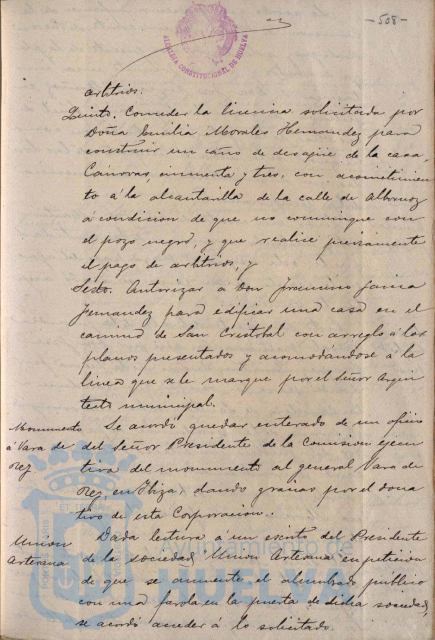 -508-
ALCALDIA CONSTITUCIONAL DE HUELVA
arbitrios.
Quinto. Conceder la licencia solicitada por
Doña Emilia Morales Hernandez para
construir un caño de desagüe de la casa,
Cánovas, cincuenta y tres, con acometimien
to á la alcantarilla de la calle de Albornoz
á condicion de que no comunique con
el pozo negro, y que realice previamente
el pago de arbitrios, y
Sesto. Autorizar á Don Francisco Garcia
Fernandez para edificar una casa en el
camino de San Cristobal con arreglo á los
planos presentados y acomodándose á la
linea que se le marque por el Señor Arqui
tecto municipal.
Monumento
á Vara de
Rey
Se acordó quedar enterado de un oficio
del Señor Presidente de la Comision ejecu
tiva del monumento al general Vara de
Rey en Ibiza, dando gracias por el dona
tivo de esta Corporacion.
Union
Artesana
Dada lectura á un escrito del Presidente
de la sociedad Union Artesana en peticion
de que se aumente el alumbrado publico
con una farola en la puerta de dicha sociedad,
se acordó acceder á lo solicitado.
HUELVA